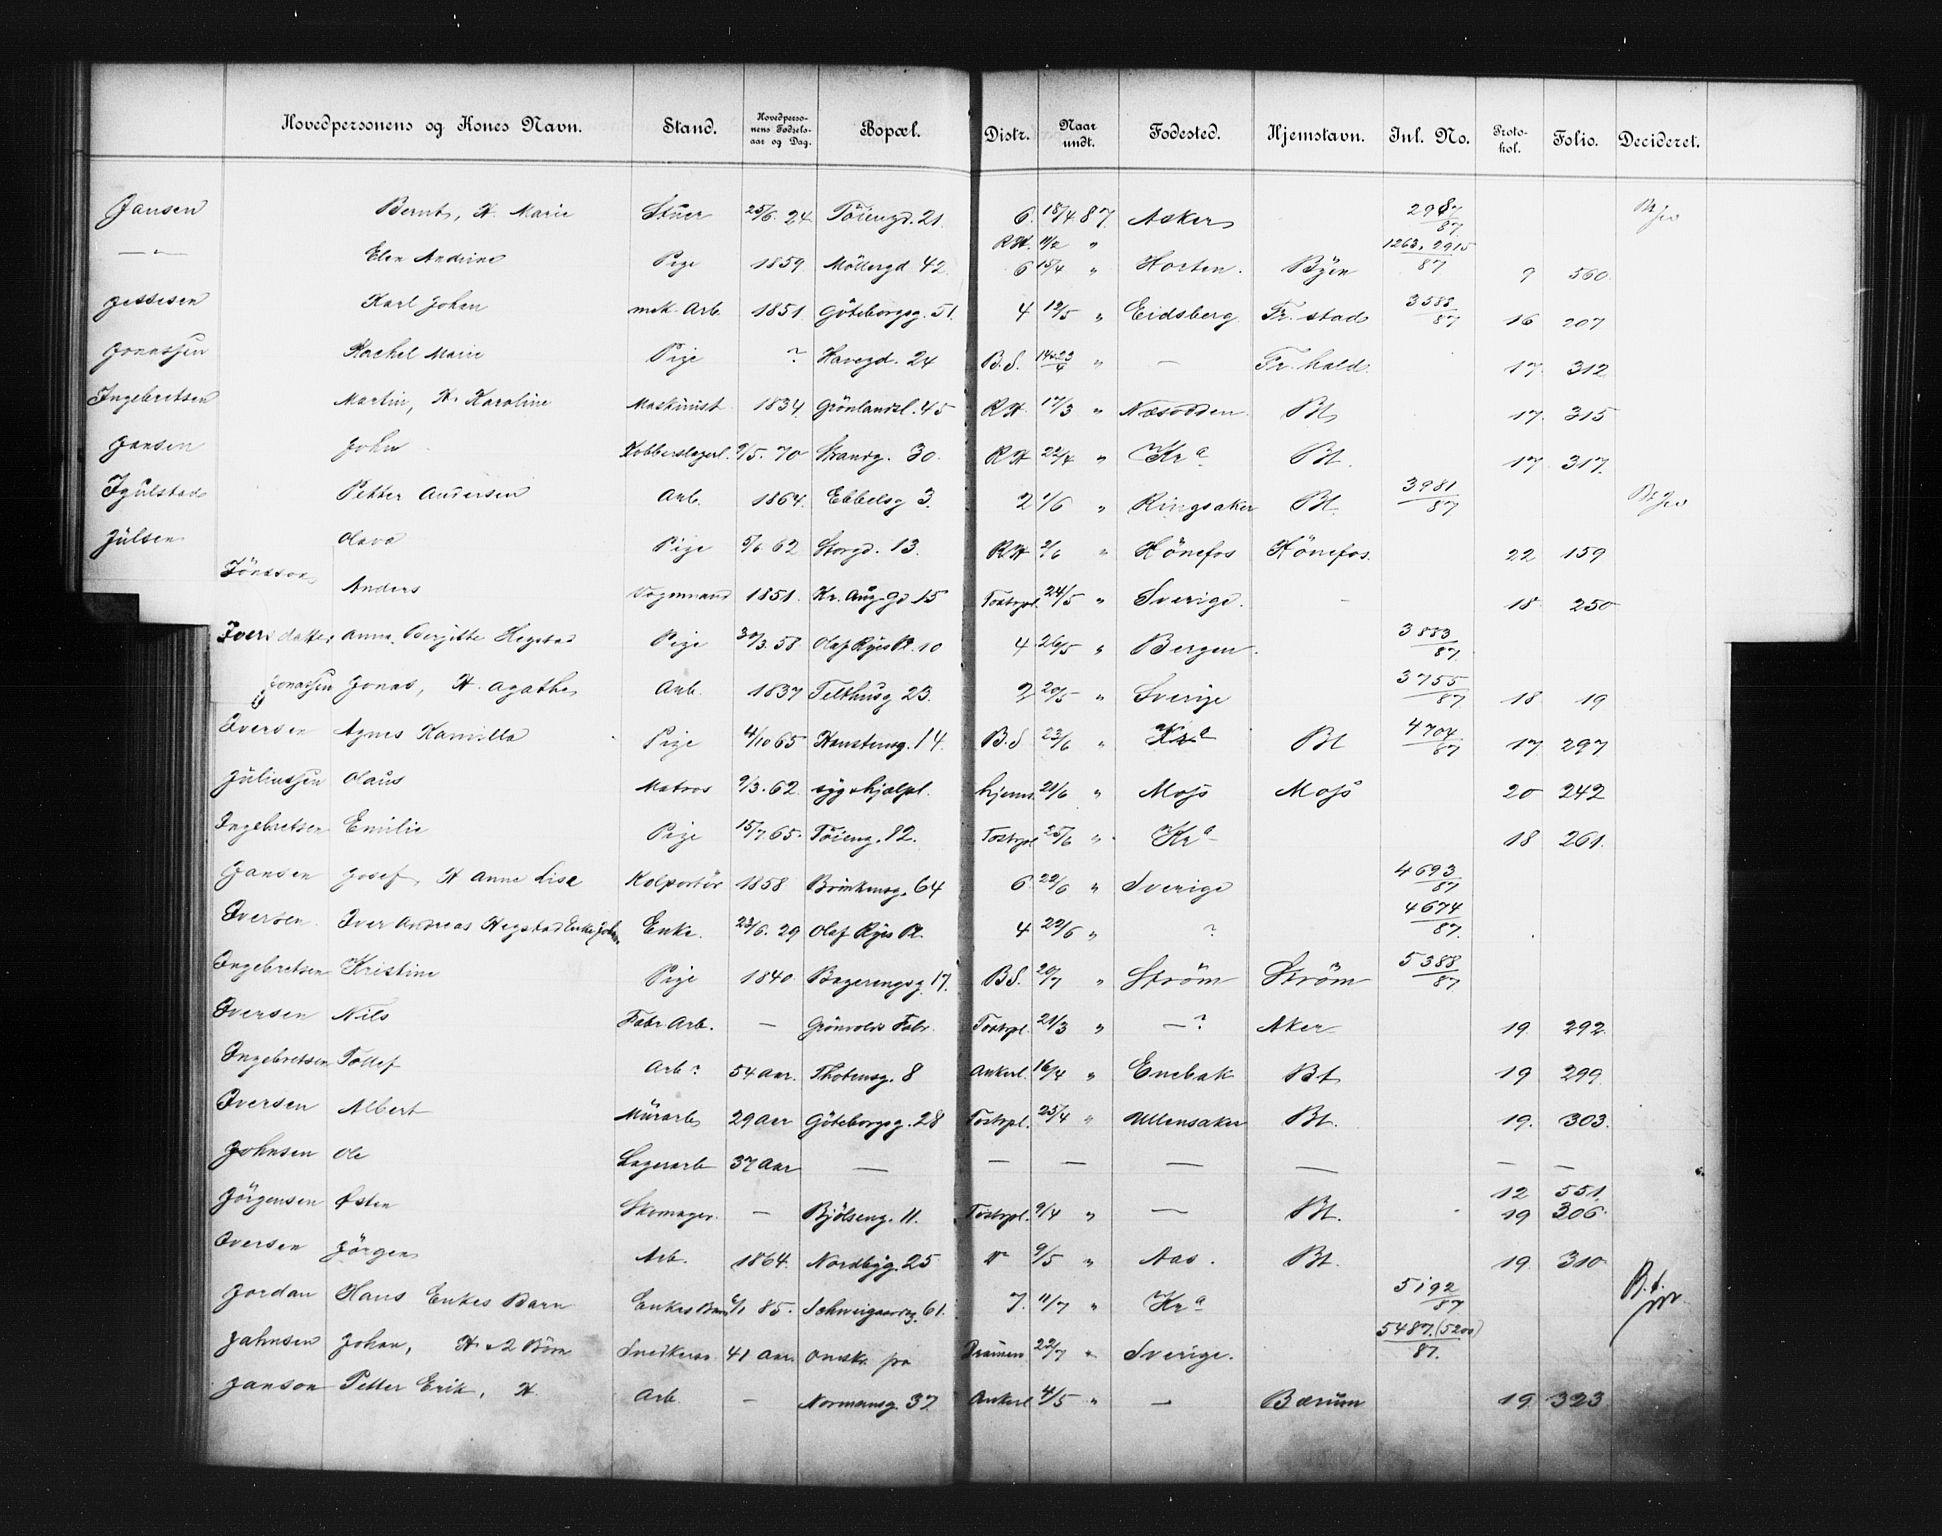 Hovedpersonens og Kones Navn. Stand. Hovedpersonens Fødselsaar og Dag. Bopæl. Distr. Naar undt. Fødested. Hjemstavn. Inl. No. Protokol. Folio. Decideret.
Jansen Bernt, H. Marie Stuer 25/6 24 Töiengd. 21. 6. 18/4 87. Asker 2987/87
— " — Elen Andrine Pige 1859 Möllergd 42 RH. 11/2 " 6 15/4 " Horten. Byen 1263, 2915/87 9 560
Jessesen Karl Johan mek. Arb. 1851. Göteborgsg. 51. 4 12/5 " Eidsberg. Fr. stad 3583/87 16 207
Jonassen Rachel Marie Pige ? Havegd. 24 B.S. " — Fr. hald. 17. 312
Ingebretsen Martin, H. Karoline Maskinist 1834. Grönlandsl. 45 RH. 17/3 " Næsodden. Bt 17. 315
Jansen John Kobberslagerl. 9/5. 70 Strandg. 30. RH 22/4 " Kra Bt. 17. 317.
Igulstad Petter Andersen Arb. 1864. Ebbelsg 3. 2 1/6 " Ringsaker Bt. 3981/87
Julsen Olava Pige 5/6 62 Storgd. 13. RH 2/6 " Hönefos Hönefos. 22 159
Jönsson Anders Vognmand 1851. Kr. Aug. gd 15 Tostrpl. 24/5 " Sverige. - 18 250
Iversdatter Anna Berjitte Hegstad Pige 30/3. 58. Olaf Ryes Pl. 10 4 26/5 " Bergen. 3883/87.
Jonassen Jonas, H. Agathe Arb. 1837 Telthusg 23. 2 20/5 " Sverige 3755/87 18 19
Iversen Agnes Kamilla Pige 4/10 65 Hanstensg. 14. B.S 23/6 " Kra Bt 4704/87 17. 297.
Juliussen Olaus Matros 9/3. 62. syg + hjælpl. hjems. 21/6 " Moss Moss 20 242
Ingebretsen Emilie Pige 15/7 65. Töieng. 82. Tostrpl 25/6 " Kra 18 261.
Jansen Josef, H Anne Lise Kolportör 1858 Brinkensg. 64 6. 22/6 " Sverige 4693/87
Iversen. Iver Andreas Hegstad Enke Enke. 23/6. 29 Olaf Ryes Pl. 4 22/6 " ? 4674/87.
Ingebretsen Kristine Pige 1840 17. BS. 20/7 " Ström Ström 5388/87.
Iversen Nils Fabr Arb. — Grönvolds Fabr. Tostrpl. 21/3 " — ? Aker 19. 292.
Ingebretsen Tollef Arb ? 54 Aar. Thotensg. 8 Ankerl. 16/4 " Enebak Bt 19 299.
Iversen Albert Murarb 29 Aar Göteborgsg. 28 Tostrpl. 25/4 " Ullensaker Bt. 19. 303.
Johnsen Ole Lagerarb 37 Aar — — — — — — —
Jörgensen Østen Skomager. — Bjölseng. 11. Tostrpl. 9/4 " — Bt. 12 551. 19 306.
Iversen Jörgen Arb. 1864. Nordbyg. 25 9/5 " Aas. Bt. 19. 310
Jordan Hans Enkes Barn Enkes Barn 6/1 85. Schweigaardsg. 61. 7. 11/7 " Kra 5192/87 B.t.
Jahnsen Johan, H. + 2 Börn Snedkersv. 41 Aar. önsk. fra Drammen 22/7 " Sverige. 5487. (5200)/87.
Janson Petter Erik, H. Arb — Normansg. 37 Ankerl 4/5 " — Bærum 19. 323.